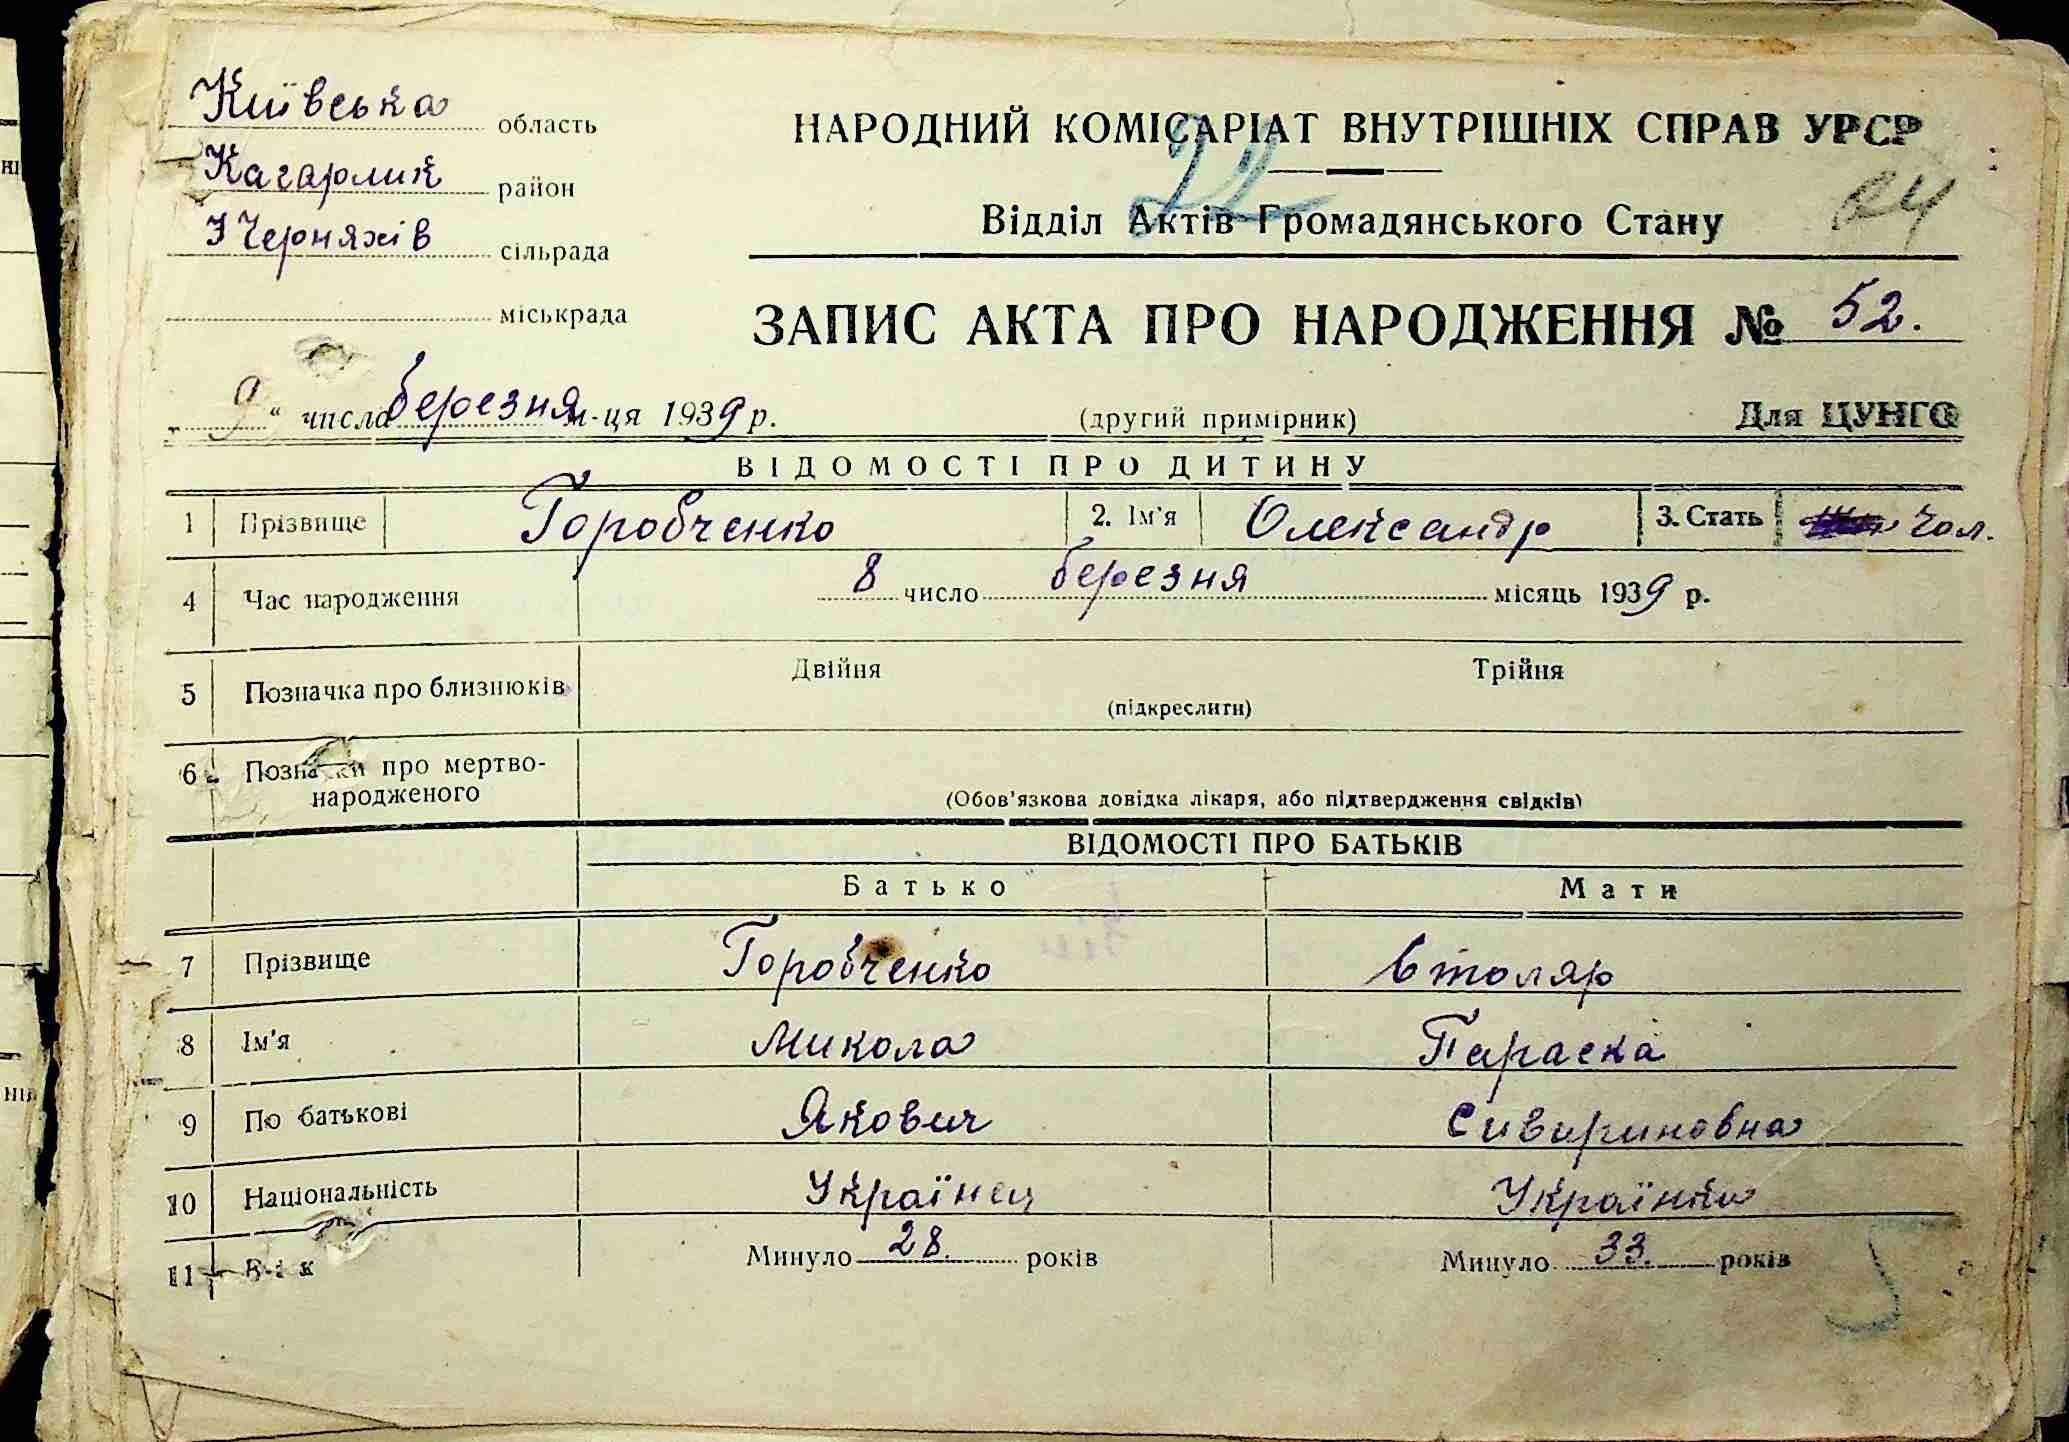 Київська область
Кагарлик район
І Черняхів сільрада
міськрада
НАРОДНИЙ КОМІСАРІАТ ВНУТРІШНІХ СПРАВ УРСР
22
Відділ Актів Громадянського Стану
24
ЗАПИС АКТА ПРО НАРОДЖЕННЯ № 52.
„ 9 “ числа березня м-ця 1939 р.
(другий примірник)
Для ЦУНГО
ВІДОМОСТІ ПРО ДИТИНУ
1 Прізвище Горобченко 2. Ім'я Олександр 3. Стать Чол.
4 Час народження 8 число березня місяць 1939 р.
5 Позначка про близнюків Двійня Трійня
(підкреслити)
6 Позначки про мертво-
народженого
(Обов'язкова довідка лікаря, або підтвердження свідків)
ВІДОМОСТІ ПРО БАТЬКІВ
Батько Мати
7 Прізвище Горобченко Столяр
8 Ім'я Микола Параска
9 По батькові Якович Сивириновна
10 Національність Українец Українка
11 Вік Минуло 28. років Минуло 33. років